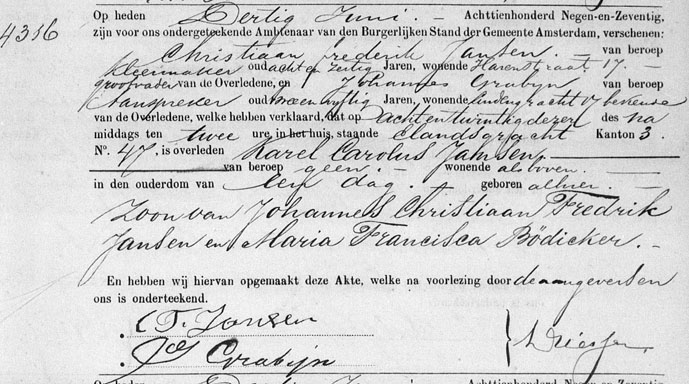 4316
Op heden Dertig Juni. – Achttienhonderd Negen-en-Zeventig,
zijn voor ons ondergeteekende Ambtenaar van den Burgerlijken Stand der Gemeente Amsterdam, verschenen:
Christiaan frederik Jansen. – van beroep
Kleermaker oud acht en zestig Jaren, wonende Harenstraat 17. –
grootvader van de Overledene, en Johannes Grabijn van beroep
Aanspreker oud twee en vyftig Jaren, wonende Lindengracht 17 bekende
van de Overledene, welke hebben verklaard, dat op acht en twintig dezer des na
middags ten twee ure, in het huis, staande Elandsgracht Kanton 3.
N°. 47, is overleden Karel Carolus Jansen, –
van beroep geen. – wonende als boven. –
in den ouderdom van een dag. – geboren alhier. –
Zoon van Johannes Christiaan Fredrik
Jansen en Maria Francisca Bödicker. –
En hebben wij hiervan opgemaakt deze Akte, welke na voorlezing door de aangevers en
ons is onderteekend.
Jansen
Grabijn
Op heden Achttienhonderd Negen-en-Zeventig,